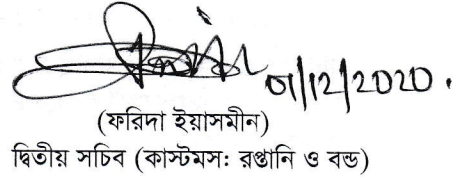 01/12/2020.
(ফরিদা ইয়াসমীন)
দ্বিতীয় সচিব (কাস্টমস: রপ্তানি ও বন্ড)